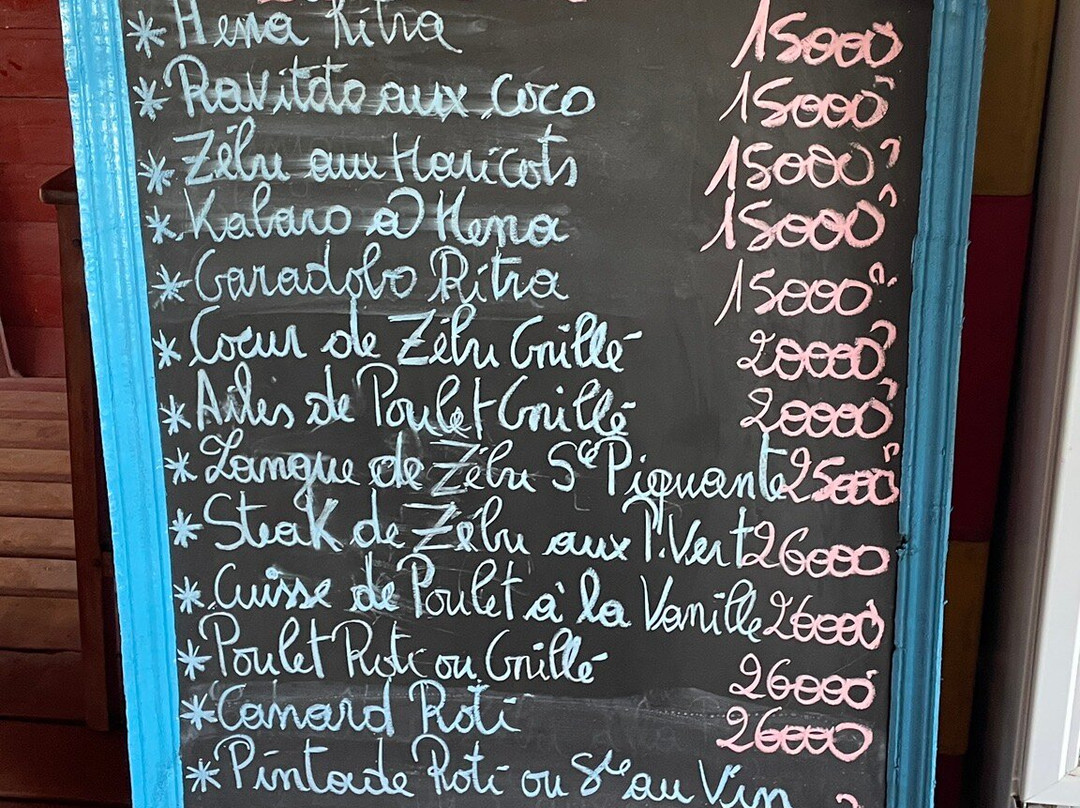 * Hena Ritra 15000
* Ravitoto aux Coco 15000
* Zébu aux Haricots 15000
* Kabaro à Hena 15000
* Garadobo Ritra 15000
* Coeur de Zébu Grillé 20000
* Ailes de Poulet Grillé 20000
* Langue de Zébu Sce Piquante 25000
* Steak de Zébu aux P. Vert 26000
* Cuisse de Poulet à la Vanille 26000
* Poulet Roti ou Grillé 26000
* Canard Roti 26000
* Pintade Roti ou Sce au Vin